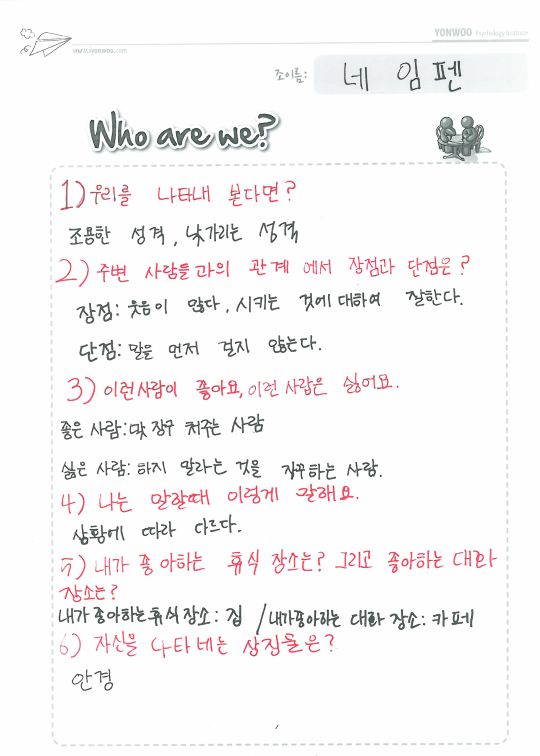 www.iyonwoo.com
YONWOO Psychology Institute
조이름: 네임펜
Who are we?
1) 우리를 나타내 본다면?
조용한 성격, 낯가리는 성격
2) 주변 사람들과의 관계에서 장점과 단점은?
장점: 웃음이 많다, 시키는 것에 대하여 잘한다.
단점: 말을 먼저 걸지 않는다.
3) 이런사람이 좋아요, 이런 사람은 싫어요.
좋은 사람: 맞장구 쳐주는 사람
싫은 사람: 하지 말라는 것을 자꾸하는 사람.
4) 나는 말할때 이렇게 말해요.
상황에 따라 다르다.
5) 내가 좋아하는 휴식 장소는? 그리고 좋아하는 대화
장소는?
내가 좋아하는 휴식 장소: 집 / 내가 좋아하는 대화 장소: 카페
6) 자신을 나타네는 상징물은?
안경